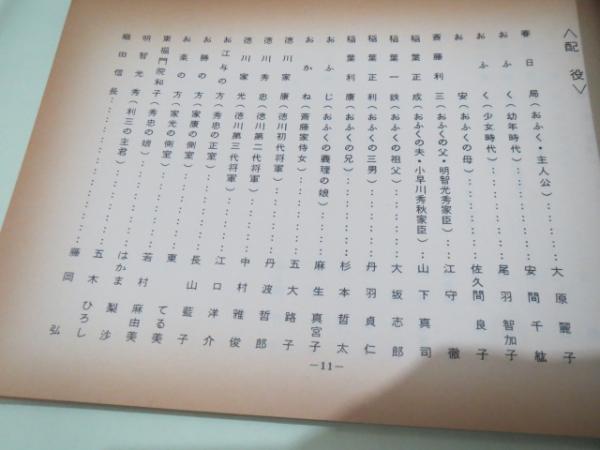 ＜配役＞
春日局(おふく・主人公)…………大原麗子
おふく(幼年時代)…………安間千紘
おふく(少女時代)…………尾羽智加子
お安(おふくの母)…………佐久間良子
斎藤利三(おふくの父・明智光秀家臣)…江守徹
稲葉正成(おふくの夫・小早川秀秋家臣)…山下真司
稲葉一鉄(おふくの祖父)…………大坂志郎
稲葉正利(おふくの三男)…………丹羽貞仁
稲葉利康(おふくの兄)…………杉本哲太
おふじ(おふくの義理の娘)…………麻生真宮子
おかね(斎藤家侍女)…………五大路子
徳川家康(徳川初代将軍)…………丹波哲郎
徳川秀忠(徳川第二代将軍)…………中村雅俊
徳川家光(徳川第三代将軍)…………江口洋介
お江与の方(秀忠の正室)…………長山藍子
お勝の方(家康の側室)…………東てる美
お楽の方(家光の側室)…………若村麻由美
東福門院和子(秀忠の娘)…………はかま梨沙
明智光秀(利三の主君)…………五木ひろし
織田信長…………藤岡弘
－11－